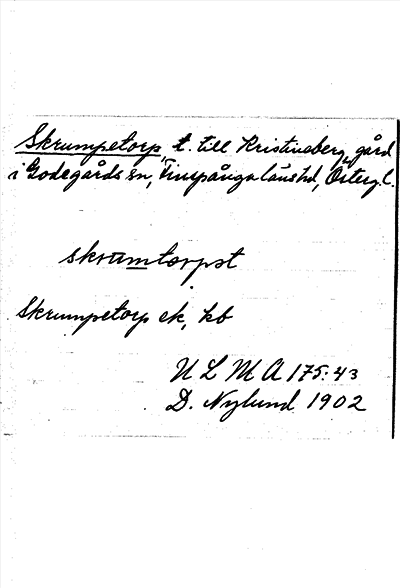 Skrumpetorp, t. till Kristineberg, gård
i Godegårds sn, Finspånga länshd, Österg. l.
skrumtorpst
Skrumpetorp ek, kb
ULMA 175:43
D. Nylund 1902